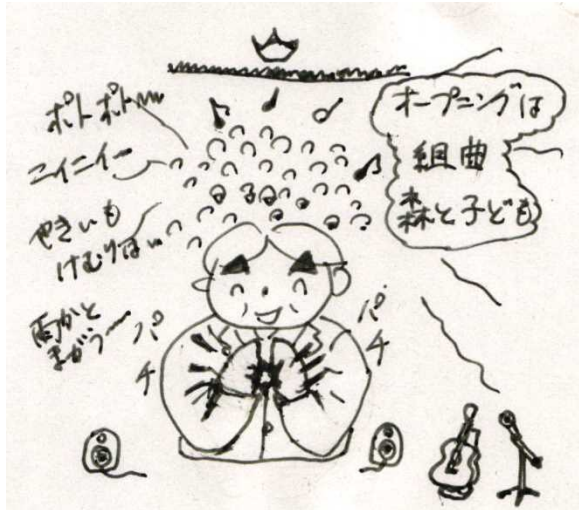 ポトポト
ニイニイー
やきいも
けむりは…
雨かと
まがうー
オープニングは
組曲
森と子ども
パチ
パチ